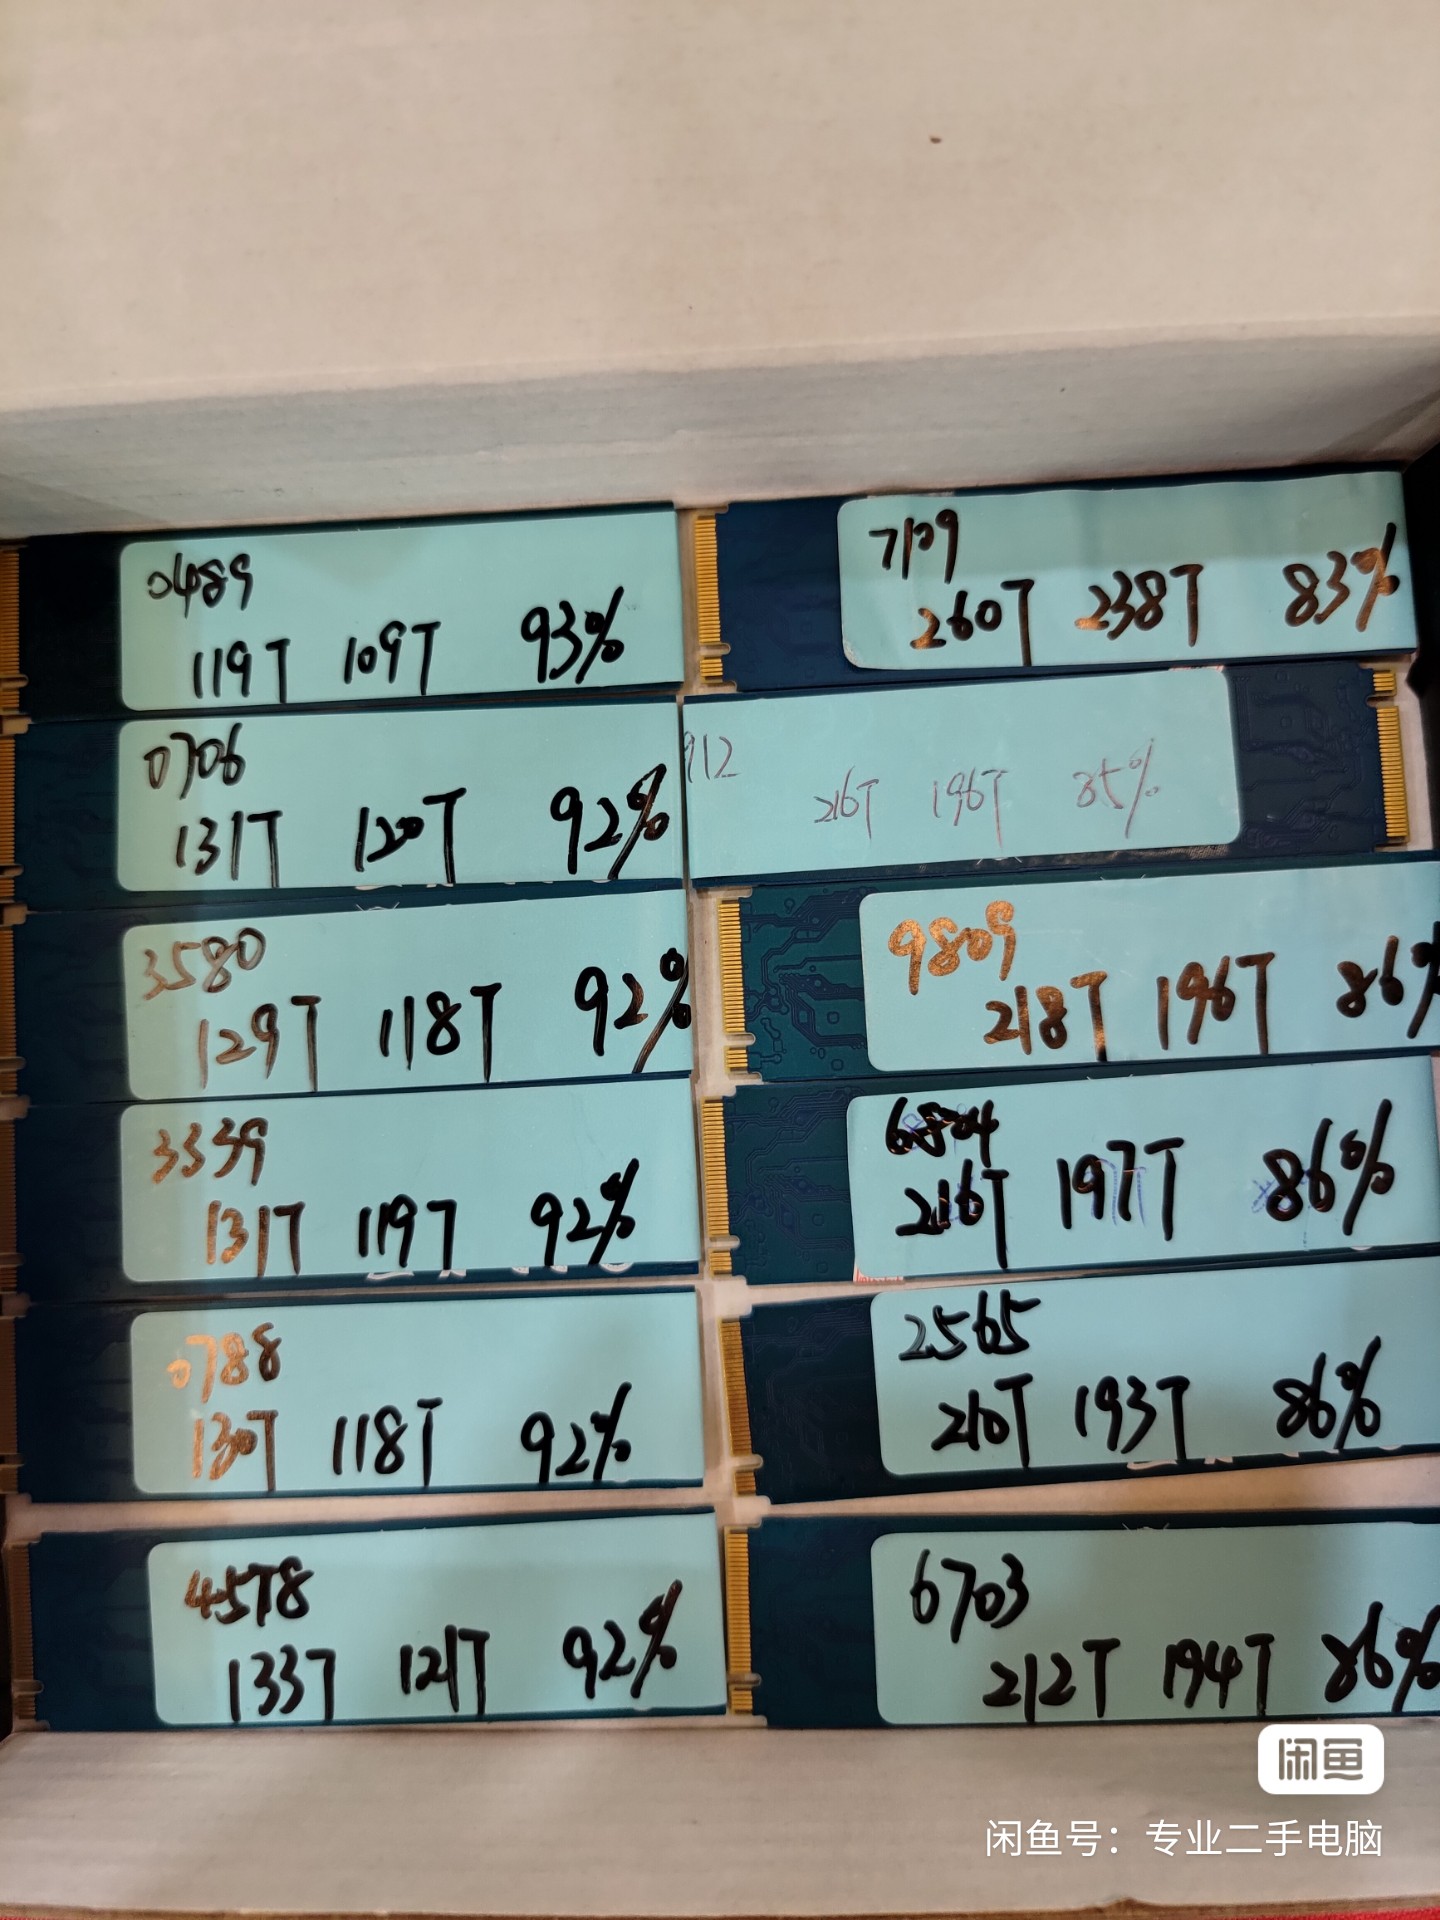 0489
119T 109T 93%
0706
131T 120T 92%
3580
129T 118T 92%
3339
131T 119T 92%
0788
130T 118T 92%
4578
133T 121T 92%
7109
260T 238T 83%
912
216T 196T 85%
9809
218T 196T 86%
216T 197T 86%
2565
210T 193T 86%
6703
212T 194T 86%
闲鱼
闲鱼号：专业二手电脑